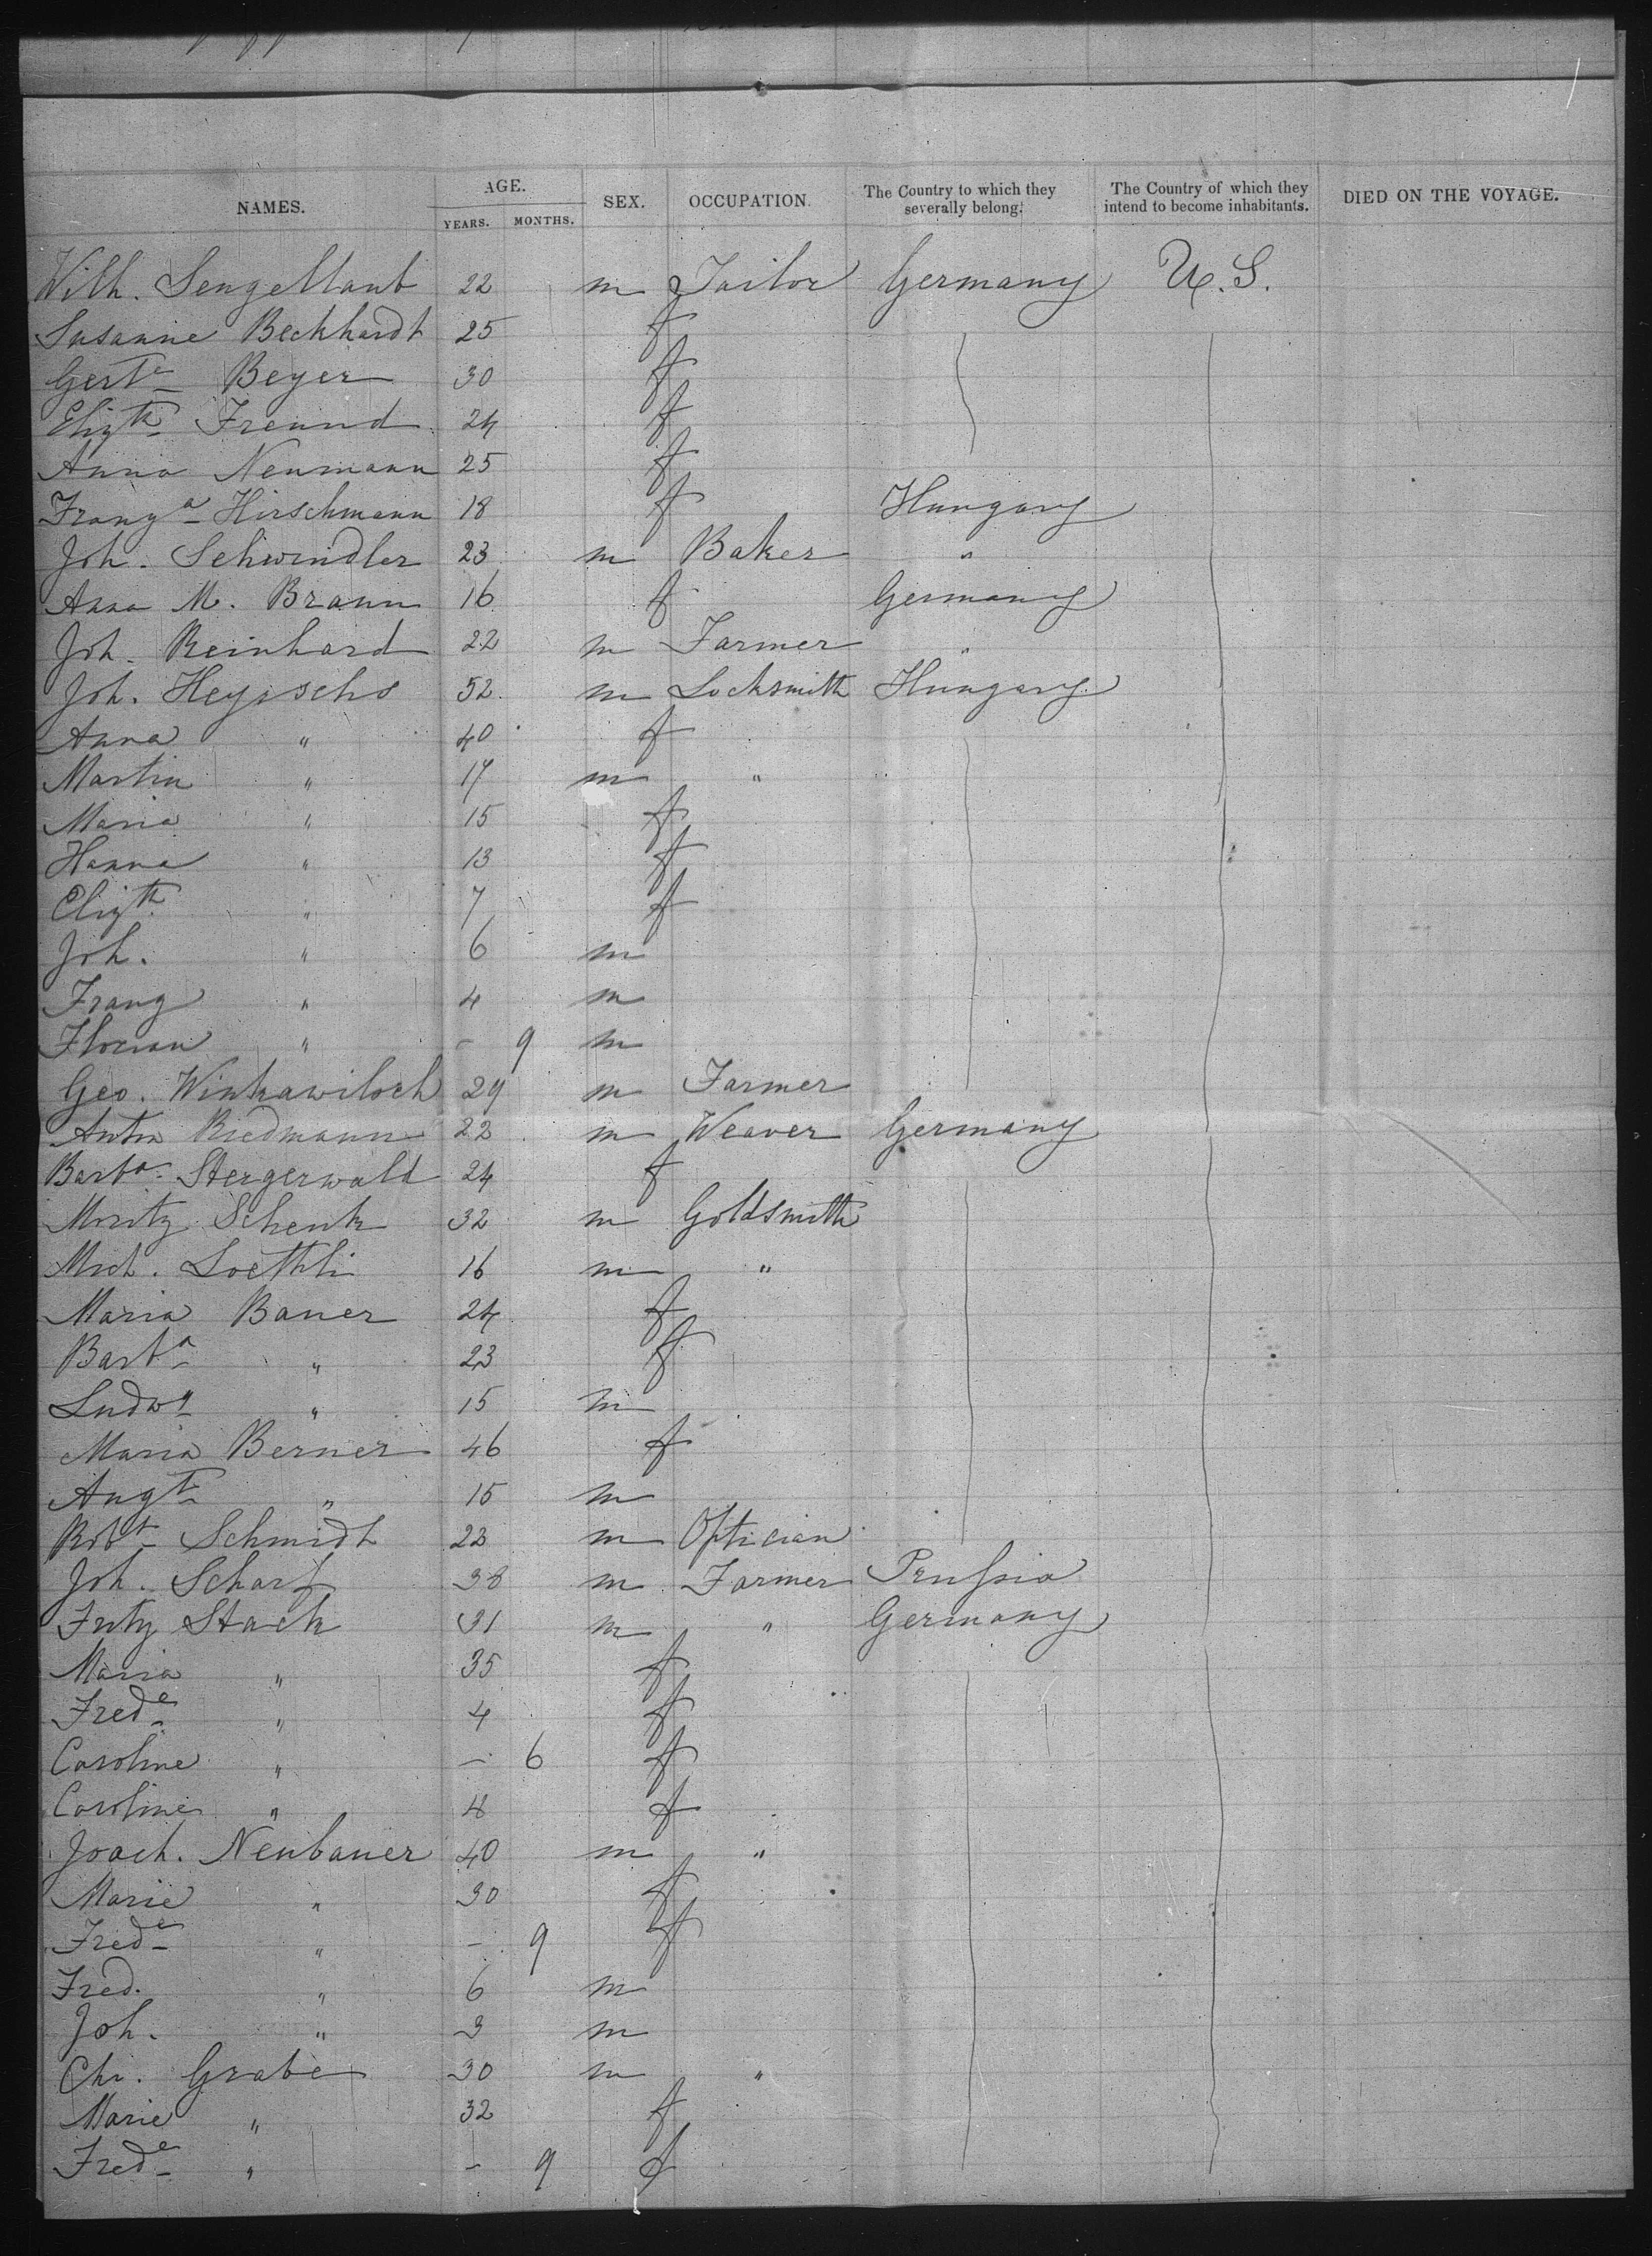 NAMES. AGE. SEX. OCCUPATION. The Country to which they severally belong. The Country of which they intend to become inhabitants. DIED ON THE VOYAGE.
YEARS. MONTHS.
Wilh. Sengellaub 22 m Tailor Germany U.S.
Susanne Beckhardt 25 f
Gert^e Beyer 30 f
Eliz^th Freund 24 f
Anna Neumann 25 f
Franz^a Hirschmann 18 f Hungary
Joh. Schwindler 23 m Baker "
Anna M. Braun 16 f Germany
Joh. Reinhard 22 m Farmer "
Joh. 52 m Locksmith Hungary
Anna " 40 f
Martin " 17 m "
Maria " 15 f
Hanna " 13 f
Eliz^th " 7 f
Joh. " 6 m
Franz " 4 m
Florian " - 9 m
Geo. 29 m Farmer
Anton Riedmann 22 m Weaver Germany
Barb^a Stergerwald 24 f
Moritz Schenk 32 m Goldsmith
Mich. Loethli 16 m "
Maria Bauer 24 f
Barb^a " 23 f
Ludw^g " 15 m
Maria Berner 46 f
Aug^t " 15 m
Rob^t Schmidt 23 m Optician
Joh. Scharf 38 m Farmer Prussia
Fritz Stack 31 m " Germany
Maria " 35 f
Fred^e " 4 f
Caroline " - 6 f
Caroline " f
Joach. Neubauer 40 m "
Marie " 30 f
Fred^e " - 9 f
Fred. " 6 m
Joh. " 3 m
Chr. Grabe 30 m "
Marie " 32 f
Fred^e " - 9 f